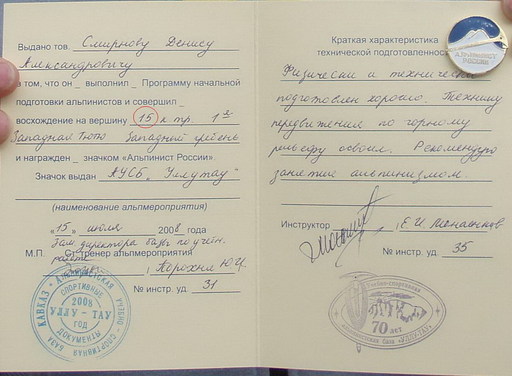 Выдано тов. Смирнову Денису
Александровичу
в том, что он выполнил Программу начальной
подготовки альпинистов и совершил
восхождение на вершину 15 к тр. 1
Западная Тютю Западный гребень
и награжден значком «Альпинист России».
Значок выдан АУСБ "Уллутау"
(наименование альпмероприятия)
«15» июля 2008 года
Зам директора базы по учебн.
работе
М.П. Ст. тренер альпмероприятия
Ю.И.
№ инстр. уд. 31
КАВКАЗ АЛЬПИНИСТСКАЯ УЧЕБНО - СПОРТИВНАЯ БАЗА
СПОРТИВНЫЕ
2008
УЛЛУ - ТАУ
ГОД
ДОКУМЕНТЫ
Краткая характеристика
технической подготовленнос
АЛЬПИНИСТ
РОССИИ
Физически и технически
подготовлен хорошо. Технику
передвижения по горному
рельефу освоил. Рекомендую
занятие альпинизмом.
Инструктор Е.И.
№ инстр. уд. 35
Учебно-спортивная
70 лет
альпинистская база «УЛЛУТАУ»